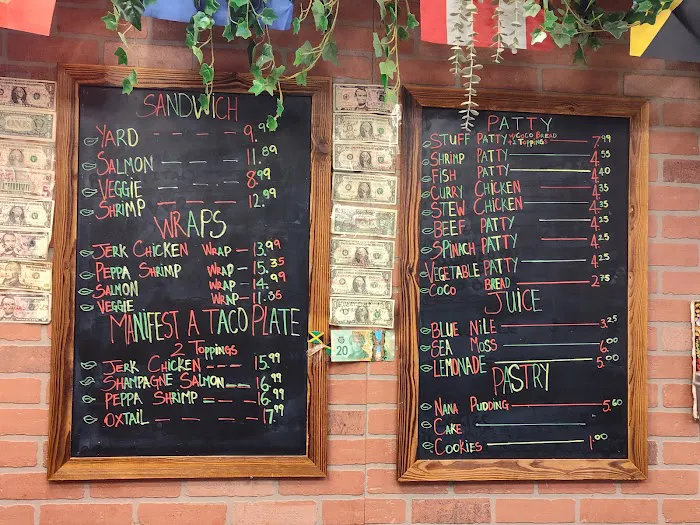 SANDWICH
YARD 9.99
SALMON 11.89
VEGGIE 8.99
SHRIMP 12.99
WRAPS
JERK CHICKEN WRAP 13.99
PEPPA SHRIMP WRAP 15.35
SALMON WRAP 14.99
VEGGIE WRAP 11.35
MANIFEST A TACO PLATE
2 TOPPINGS
JERK CHICKEN 15.99
SHAMPAGNE SALMON 16.99
PEPPA SHRIMP 16.99
OXTAIL 17.99
20
PATTY
STUFF PATTY W/COCO BREAD +2 TOPPINGS 7.99
SHRIMP PATTY 4.55
FISH PATTY 4.40
CURRY CHICKEN 4.35
STEW CHICKEN 4.35
BEEF PATTY 4.25
SPINACH PATTY 4.25
VEGETABLE PATTY 4.25
COCO BREAD 2.75
JUICE
BLUE NILE 3.25
SEA MOSS 6.00
LEMONADE 5.00
PASTRY
NANA PUDDING 5.60
CAKE
COOKIES 1.00